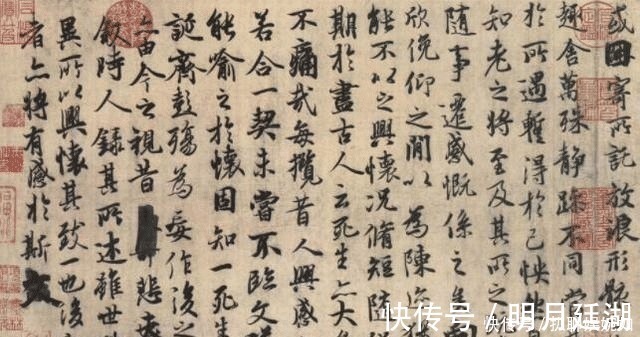 或因寄所託放浪形
趣舍萬殊靜躁不同當
於所遇暫得於己怏
知老之將至及其所之
隨事遷感慨係之矣
欣俛仰之閒以為陳迹
能不以之興懷況脩短隨
期於盡古人云死生亦大
不痛哉每攬昔人興感
若合一契未嘗不臨文
能喻之於懷固知一死生
誕齊彭殤為妄作後之
亦由今之視昔悲夫
叙時人錄其所述雖世
異所以興懷其致一也後
者亦將有感於斯文
快传号/明月廷湖